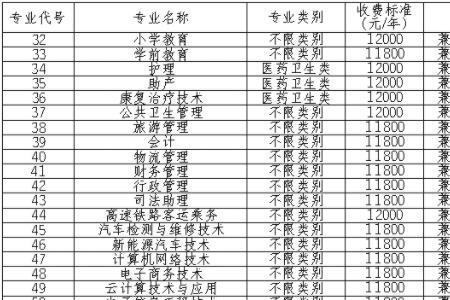 专业代号 专业名称 专业类别 收费标准
(元/年)
32 小学教育 不限类别 12000 兼
33 学前教育 不限类别 11800 兼
34 护理 医药卫生类 12000 兼
35 助产 医药卫生类 12000 兼
36 康复治疗技术 医药卫生类 12000 兼
37 公共卫生管理 不限类别 12000 兼
38 旅游管理 不限类别 11800 兼
39 会计 不限类别 11800 兼
40 物流管理 不限类别 11800 兼
41 财务管理 不限类别 11800 兼
42 行政管理 不限类别 11800 兼
43 司法助理 不限类别 11800 兼
44 高速铁路客运乘务 不限类别 12000 兼
45 汽车检测与维修技术 不限类别 11800 兼
46 新能源汽车技术 不限类别 11800 兼
47 计算机网络技术 不限类别 11800 兼
48 电子商务技术 不限类别 11800 兼
49 云计算技术与应用 不限类别 11800 兼